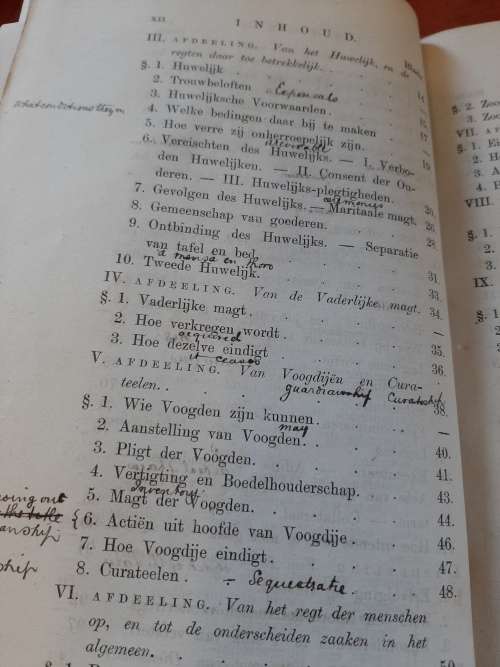 XII    INHOUD.
III. AFDEELING. Van het Huwelijk, en de
regten daar toe betrekkelijk.
§. 1. Huwelijk
2. Trouwbeloften
3. Huwelijksche Voorwaarden.
4. Welke bedingen daar bij te maken
5. Hoe verre zij onherroepelijk zijn.
6. Vereischten des Huwelijks. — I. Verbo-
den Huwelijken. — II. Consent der Ou-
deren. — III. Huwelijks-plegtigheden.
ceremonies
7. Gevolgen des Huwelijks. — Maritaale magt.
8. Gemeenschap van goederen. 28.
9. Ontbinding des Huwelijks. — Separatie
van tafel en bed
a mensa en thoro
10. Tweede Huwelijk. 31.
IV. AFDEELING. Van de Vaderlijke magt. 33.
§. 1. Vaderlijke magt. 34.
2. Hoe verkregen wordt —
acquired
3. Hoe dezelve eindigt 35.
it ceases
36.
V. AFDEELING. Van Voogdijën en Cura-
teelen. guardianship Curatorship 38.
§. 1. Wie Voogden zijn kunnen. —
may
2. Aanstelling van Voogden. 40.
3. Pligt der Voogden. 41.
4. Vertigting en Boedelhouderschap. 43.
Inventory
5. Magt der Voogden. 44.
6. Actiën uit hoofde van Voogdije 46.
7. Hoe Voogdije eindigt. 47.
8. Curateelen . — Sequestratie. 48.
VI. AFDEELING. Van het regt der menschen
op, en tot de onderscheiden zaaken in het
algemeen. 50.